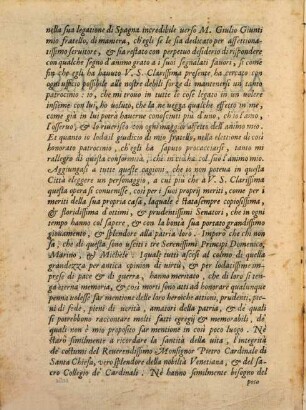 nella sua legatione di Spagna incredibile uerso M. Giulio Giunti
mio fratello, di maniera, ch'egli si è sa dedicato per affettionatissimo
seruitore, & sia restato con perpetuo desiderio di rispondere
con qualche segno d'animo grato a i suoi segnalati fauori, si come
sin che gli ha hauuto V. S. Clarissima presente, ha cercato con
ogni ufficio possibile alle nostre deboli forze di mantenersi un tanto
patrocinio: io, che mi trouo in tutte le cose legato in un uolere
insieme con lui, ho uoluto, che la ne uegga qualche effetto in me,
come già in lui potrà hauerne conosciuti più d'uno, ch'io l'amo,
l'osseruo, & riuerisco con ogni maggior affetto dell'animo mio.
Et quanto io lodai il giudicio di mio fratello, nella elettione di così
honorato patrocinio, ch'egli ha saputo procacciarsi, tanto mi
rallegro di questa conformità, che in uolta col suo l'animo mio.
Aggiungasi a tutte queste cagioni, che io non poteua in questa
Città eleggere un personaggio, a cui più che a V. S. Clarissima
questa opera si conuenisse, così per i suoi proprij meriti, come per i
meriti della sua propria casa, laquale è stata sempre copiosissima,
& floridissima d'ottimi, & prudentissimi Senatori, che in ogni
tempo hanno col sapere, & con la bontà sua portato grandissimo
giouamento, & splendore alla patria loro. Imperò che chi non
sà, che di questa sono usciti i tre Serenissimi Principi Domenico,
Marino, & Michele: I quali tutti ascesi al colmo di quella
grandezza per antica opinion di uirtù, & per lodatissime imprese
di pace & di guerra, hanno meritato, che di loro si tenga
eterna memoria, & così morti sono atti ad honorare qualunque
penna uolesse far mentione delle loro heroiche attioni, prudenti,
pieni di fede, pieni di uerità, amatori della patria, & de quali
si potrebbono raccontare molti fatti egregij & memorabili, de'
quali non è mio proposito far mentione in così poco luogo. Nè
starò similmente a ricordare la santità della uita, l'integrità
de' costumi del Reuerendissimo Monsignor Pietro Cardinale di
Santa Chiesa, uero splendore della nobiltà Venetiana, & del sacro
Collegio de' Cardinali: Nè hanno similmente bisogno del
poco